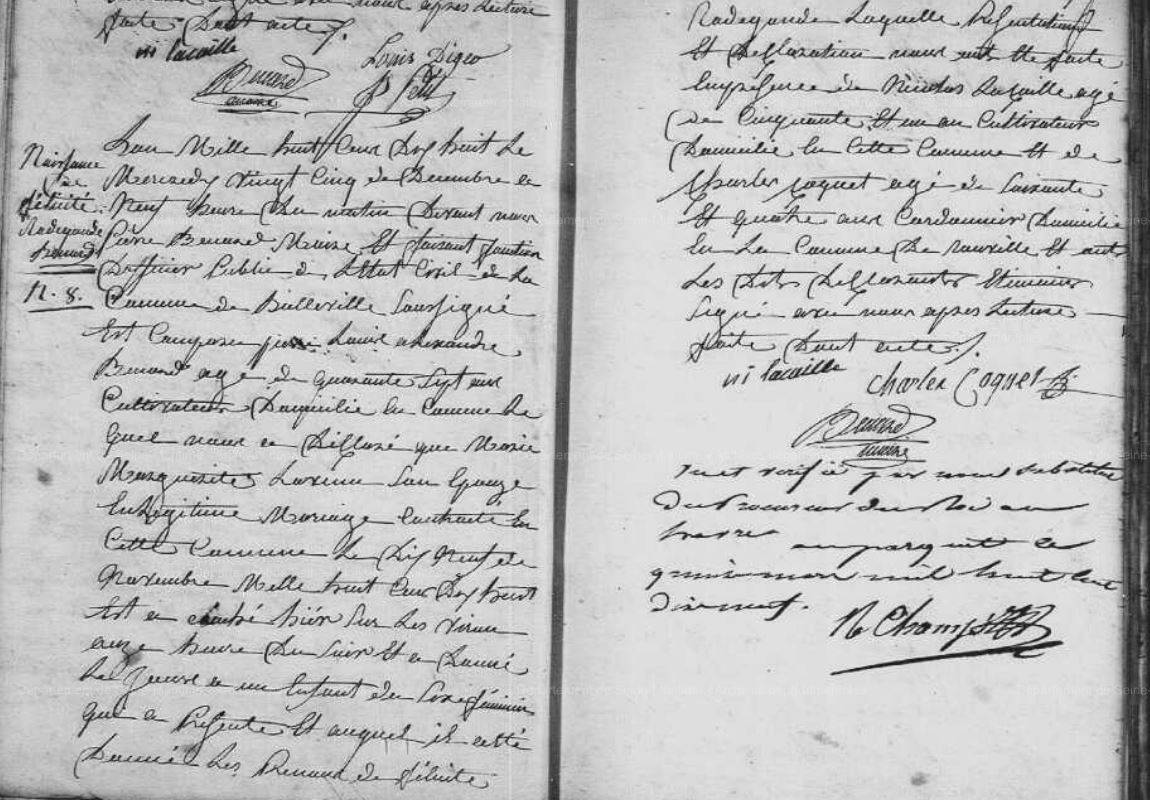 faite Dont acte
ni lacaille
Louis Digeo
Benard
maire
P Petit
Naissance
de
félicité
Radegonde
Benard
N. 8.
Lan Mille huit Cent Dix huit Le
Mercredy vingt Cinq de Decembre a
Neuf heure Du matin Devant nous
Pierre Benard Maire Et faisant fonction
Dofficier Public de Létat Civil de La
Commune de Soussigné
Est Louis alexandre
Benard agé de quarante Sept ans
Cultivateur Domicilié En Commune Le
quel nous a Déclaré que Marie
Marguerite Son Epouze
En Legitime Mariage Contracté En
Cette Commune Le Dix Neuf de
Novembre Mille huit Cent Dix huit
Est a hier Sur Les
onze heure Du Soir Et a Donné
Le Jour a un Enfant du Sexe féminin
que a Présenté Et auquel il
Donné Les Prenoms de félicité
Radegonde Laquelle Présentation
Et Desclaration nous ont Eté faite
En présence de Nicolas Lacaille agé
De Cinquante Et un an Cultivateur
Domicilié En Cette Commune Et de
Charles Coquet agé de Soixante
Et quatre ans Cordonnier Domicilié
En La Commune De Et ont
Les Dits Desclarants Et temoins
Signé avec nous apres Lecture
faite Dont acte
ni lacaille
Charles Coquet
Benard
maire
vu et vérifié par nous substitut
du Procureur du Roi au
havre au parquet le
quinze mars mil huit cent
dix neuf.